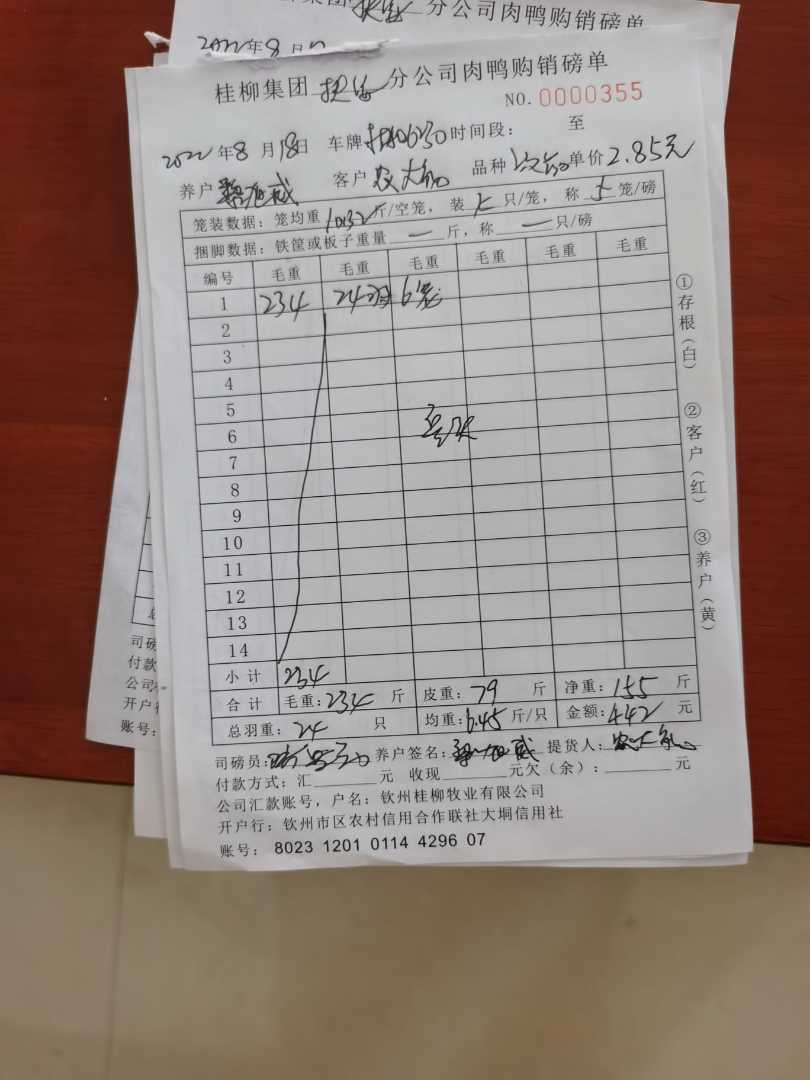 分公司肉鸭购销磅单
2022年8月
桂柳集团 分公司肉鸭购销磅单
NO. 0000355
2022年8月18日 车牌 06230 时间段： 至
养户 威 客户 农大 品种 单价2.85元
笼装数据：笼均重 斤/空笼，装 只/笼，称 5 笼/磅
捆脚数据：铁筐或板子重量 一 斤，称 一 只/磅
编号 毛重 毛重 毛重 毛重 毛重 毛重
1 234 24羽 6笼
2
3
4
5
6
7
8
9
10
11
12
13
14
小计 234
合计 毛重：234 斤 皮重：79 斤 净重：155 斤
总羽重：24 只 均重：6.45 斤/只 金额：442 元
司磅员： 养户签名： 威 提货人：农大
付款方式：汇 元 收现 元欠（余）： 元
公司汇款账号，户名：钦州桂柳牧业有限公司
开户行：钦州市区农村信用合作联社大垌信用社
账号：8023 1201 0114 4296 07
①存根（白）
②客户（红）
③养户（黄）
司磅
付款
公司
开户行
账号：